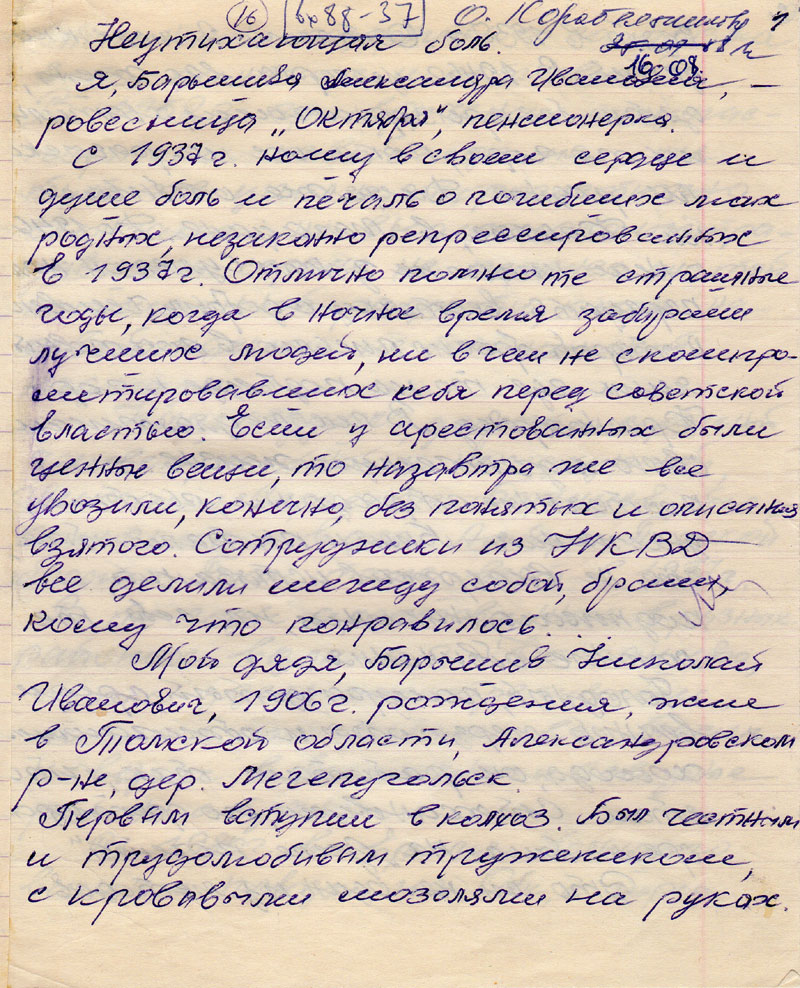 16 вр 88-37 О. 1
Неутихающая боль.
16.08.
Я, Барышева Александра Ивановна, –
ровесница „Октября", пенсионерка.
С 1937г. ношу в своем сердце и
душе боль и печаль о погибших моих
родных, незаконно репрессированных
в 1937г. Отлично помню те страшные
годы, когда в ночное время забирали
лучших людей, ни в чем не скомпро-
метировавших себя перед советской
властью. Если у арестованных были
ценные вещи, то назавтра же все
увозили, конечно, без понятых и описания
взятого. Сотрудники из НКВД
все делили между собой, брали,
кому что понравилось.
Мой дядя, Барышев Николай
Иванович, 1906г. рождения, жил
в Томской области, Александровском
р-не, дер. Мегепугольск.
Первым вступил в колхоз. Был честным
и трудолюбивым тружеником,
с кровавыми мозолями на руках.